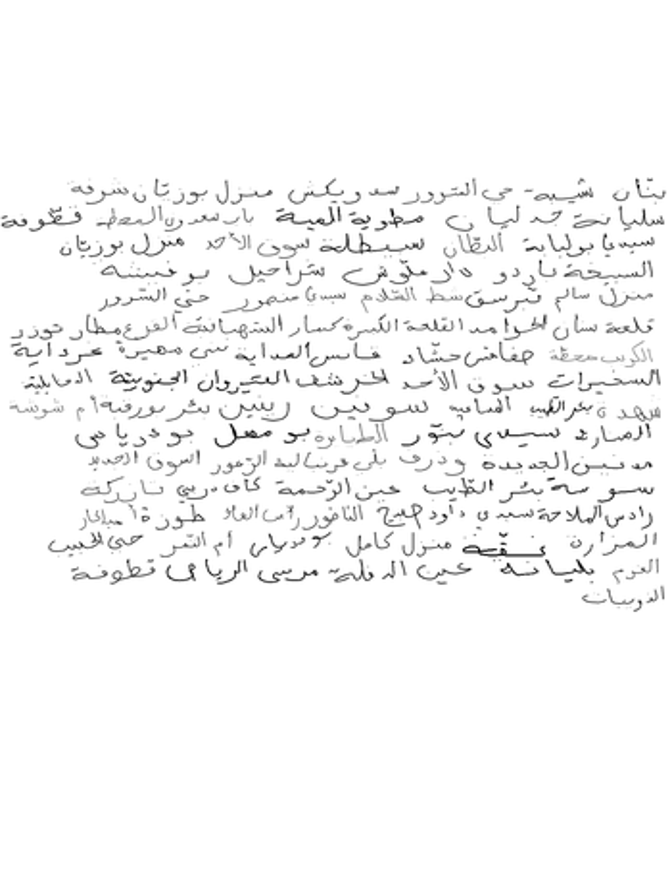 تبّان شيبة - حي التوور سد ويكش منزل بوزيّان شرفة
سليانة جد ليان مطوية المية باب سعدون المحطة قطّوفة
سيدي بولبابة البطّان سبيطلة سوق الأحد منزل بوزيّان
السبيخة باردو دار ملّوش شراحيل بو فيشة
منزل سالم تبرسق شط السّلام سيدي منصور حيّ السّرور
قلعة سنان الحوامد القلعة الكبيرة كسار الشهبانية الفرع مطار توزر
الكريب محطة صفاقس حشّاد فايس العداية سي مهيرة غرداية
السعيرات سوق الأحد الخرشف القيروان الجنوبيّة الدخايلية
شهدة بئر الطيب العامه سويس رينين بئر بورقبة أم شوشة
الصمار سيدي بنّور الطبابة بو معل بودرياس
مدنين الجديدة وذرف بلي قرنبالية الزهور السوق الجديد
سوسة بئر الطّيب عين الرّحمة كاف دربي تازركة
رادس الملاحة سيدي داود صليح الناظور رأس العالا طوزة أميلكار
المزارة عقّبة منزل كامل بودرياس أم التمر حيّ الحبيب
القوم بليانة عين الدفلة مرسى الرياحي قطوفة
الذويبات